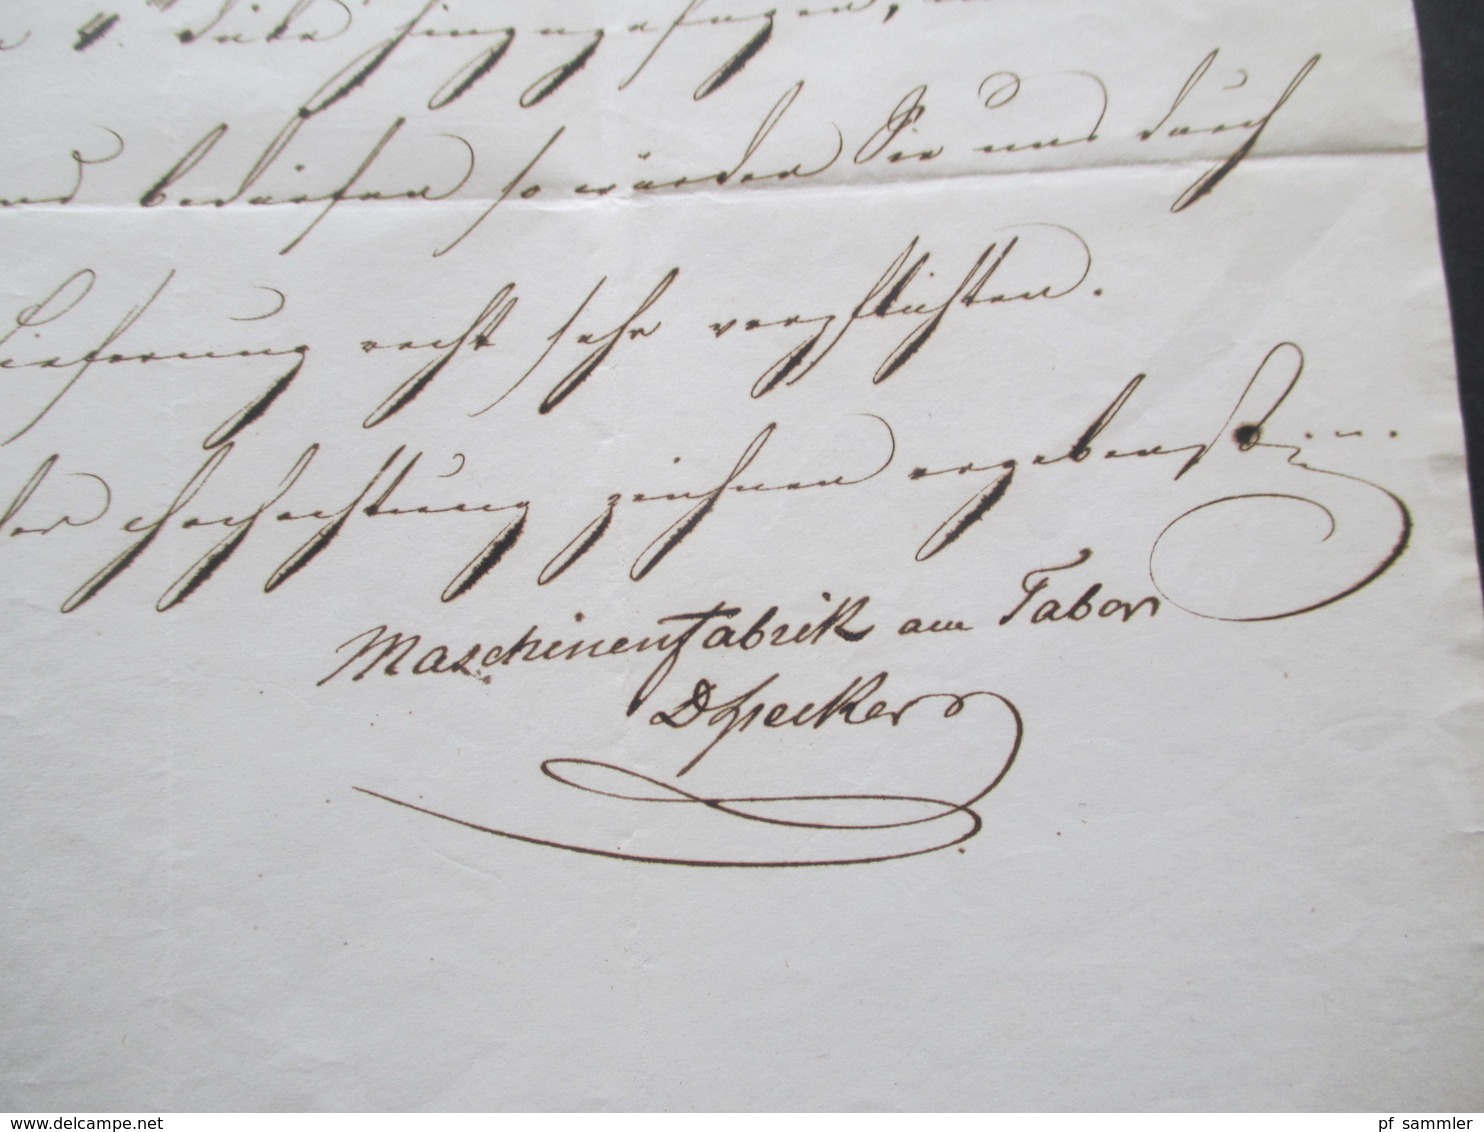 4 " Dicke hinzugefügen,
und bedürfen so würden Sie uns durch
Lieferung recht sehr verpflichten.
der Hochachtung zeichnen ergebenst
Maschinenfabrik am Tabor
DSpecker
www.delcampe.net
pf_sammler